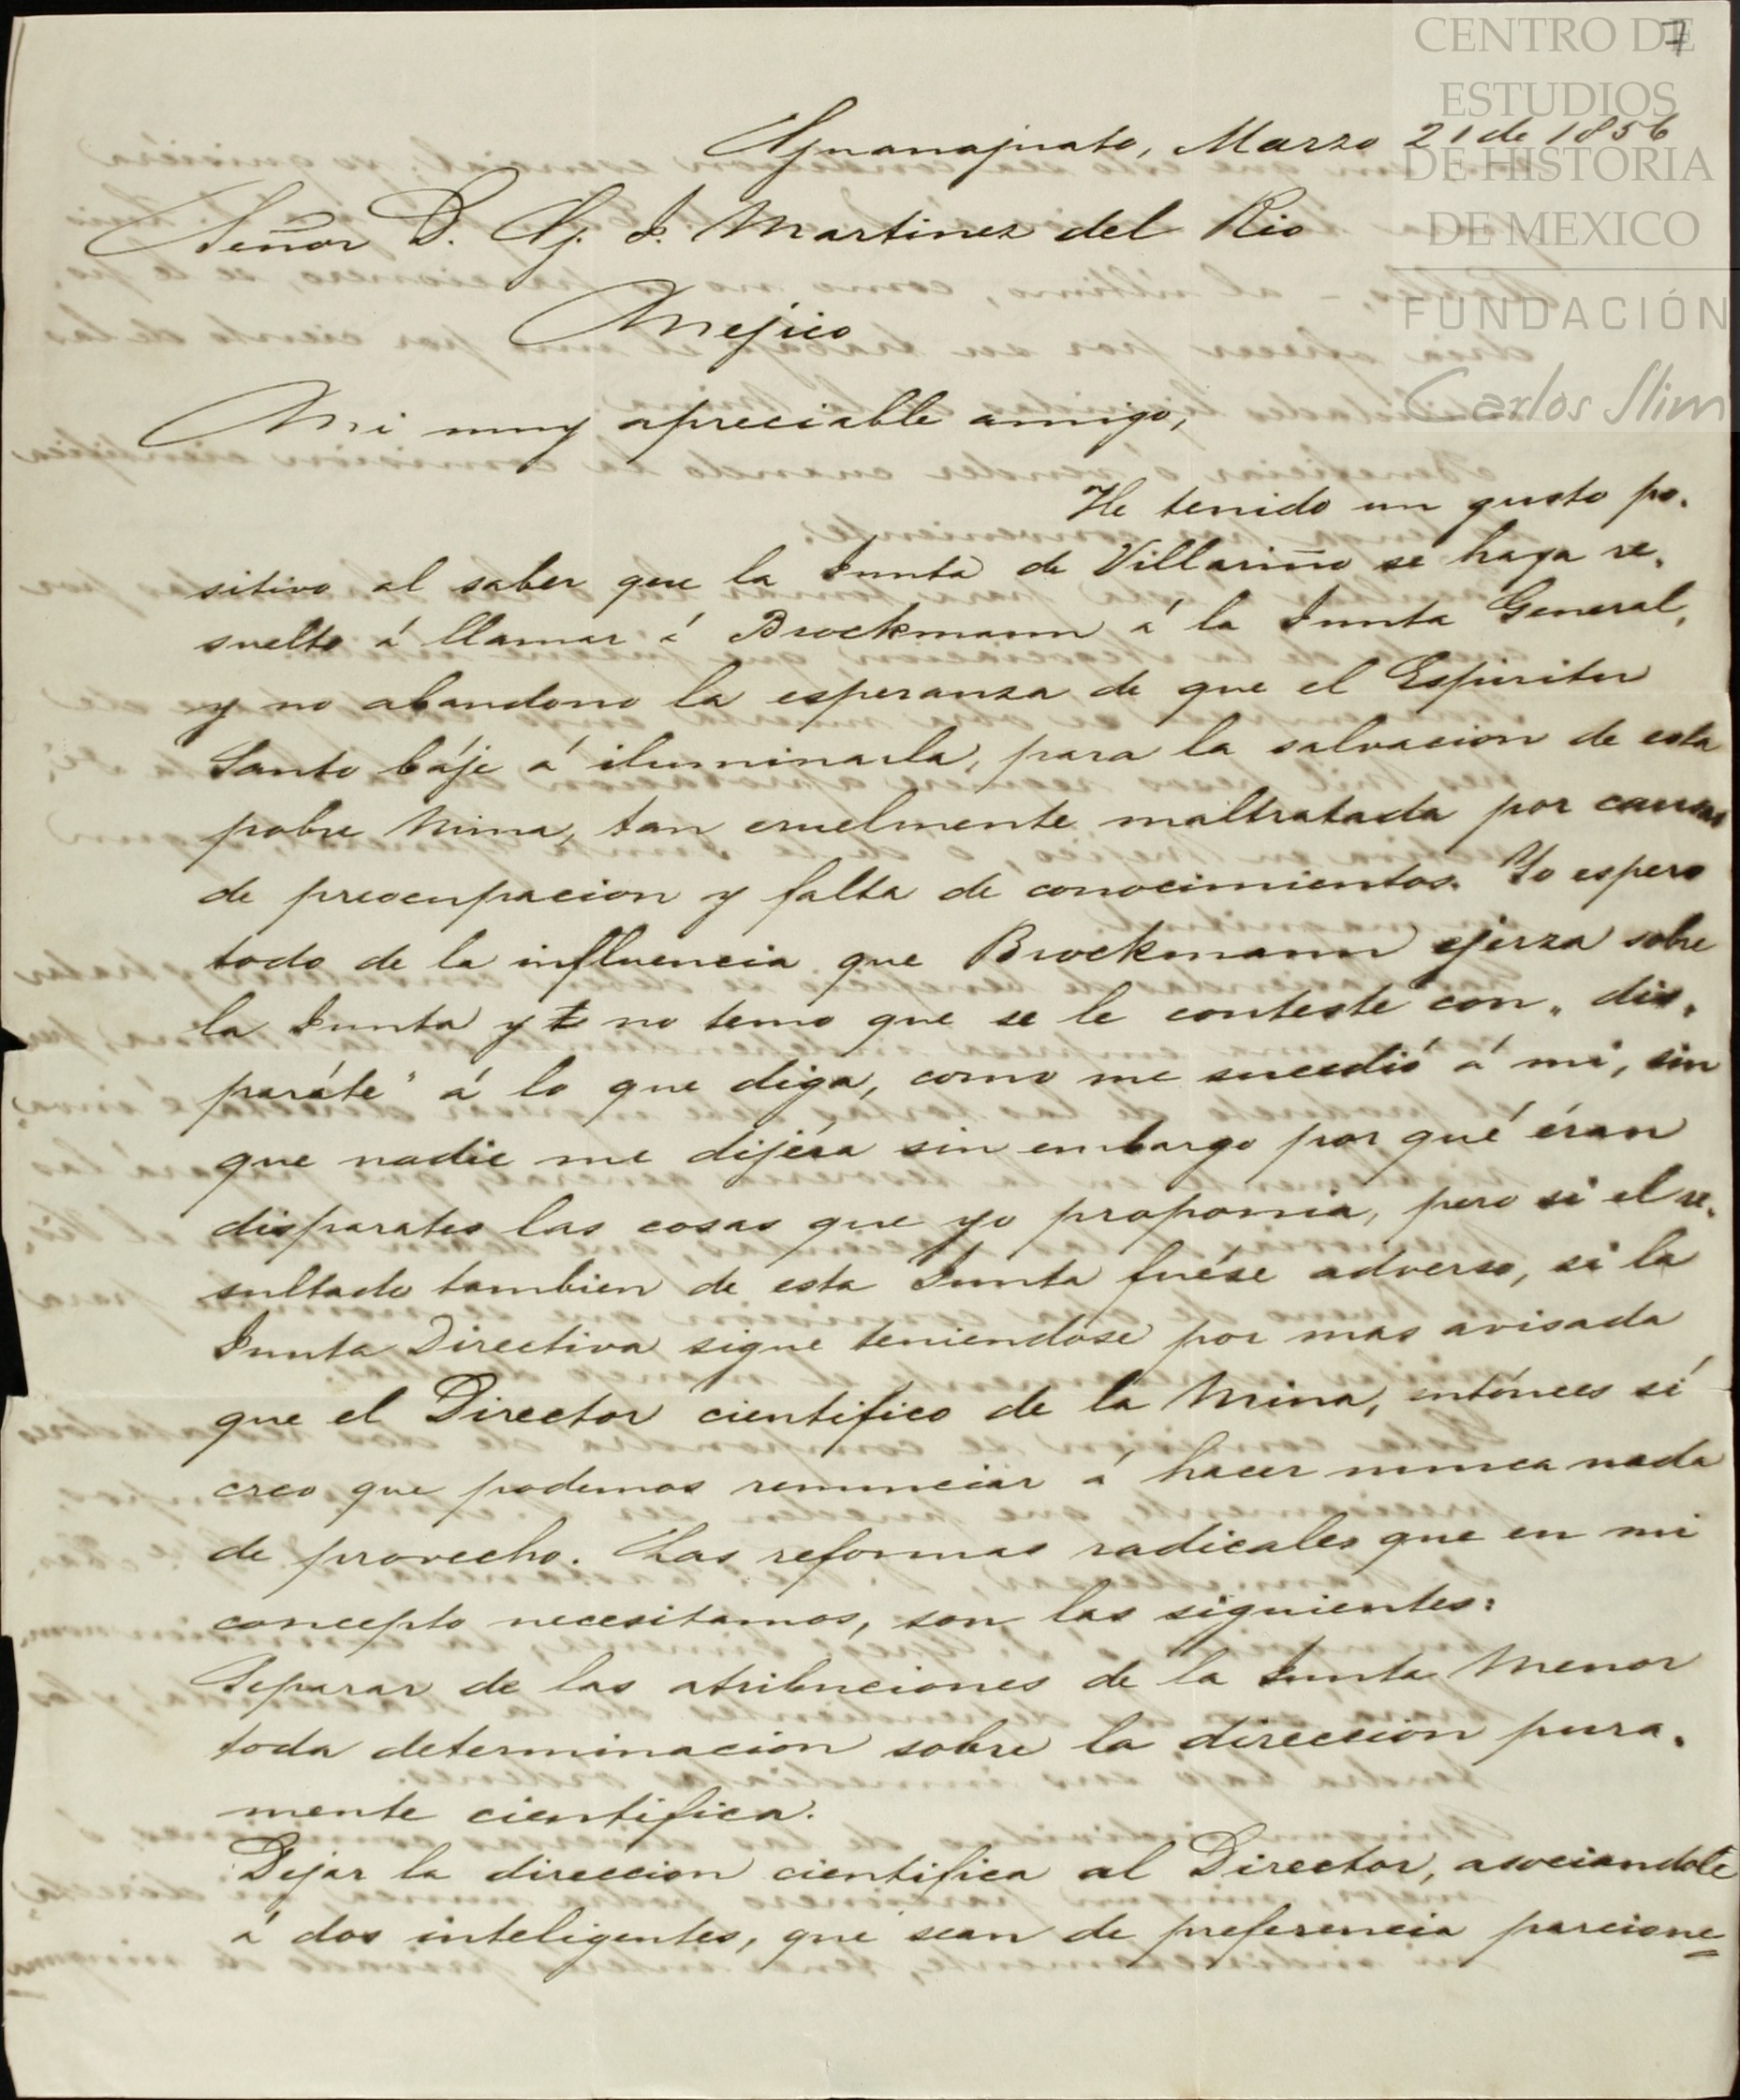 7
CENTRO DE
ESTUDIOS
DE HISTORIA
DE MEXICO
FUNDACIÓN
Carlos Slim
Guanajuato, Marzo 21 de 1856
Señor D. G. J. Martinez del Rio
Mejico
Mi muy apreciable amigo,
He tenido un gusto po-
sitivo al saber que la Junta de Villariño se haya re-
suelto á llamar á Brockmann á la Junta General,
y no abandono la esperanza de que el Espiritu
Santo báje á iluminarla, para la salvacion de esta
pobre Mina, tan cruelmente maltratada por causas
de preocupacion y falta de conocimientos. Yo espero
todo de la influencia que Brockmann ejerza sobre
la Junta y no temo que se le conteste con „ dis-
paráte" á lo que diga, como me sucedió á mi, sin
que nadie me dijéra sin embargo por qué éran
disparates las cosas que yo proponia, pero si el re-
sultado tambien de esta Junta fuése adverso, si la
Junta Directiva sigue teniendose por mas avisada
que el Director cientifico de la Mina, entónces sí
creo que podemos renunciar á hacer nunca nada
de provecho. Las reformas radicales que en mi
concepto necesitamos, son las siguientes:
Separar de las atribuciones de la Junta Menor
toda determinacion sobre la direccion pura-
mente cientifica.
Dejar la direccion cientifica al Director, asociandole
á dos inteligentes, que sean de preferencia parcione=